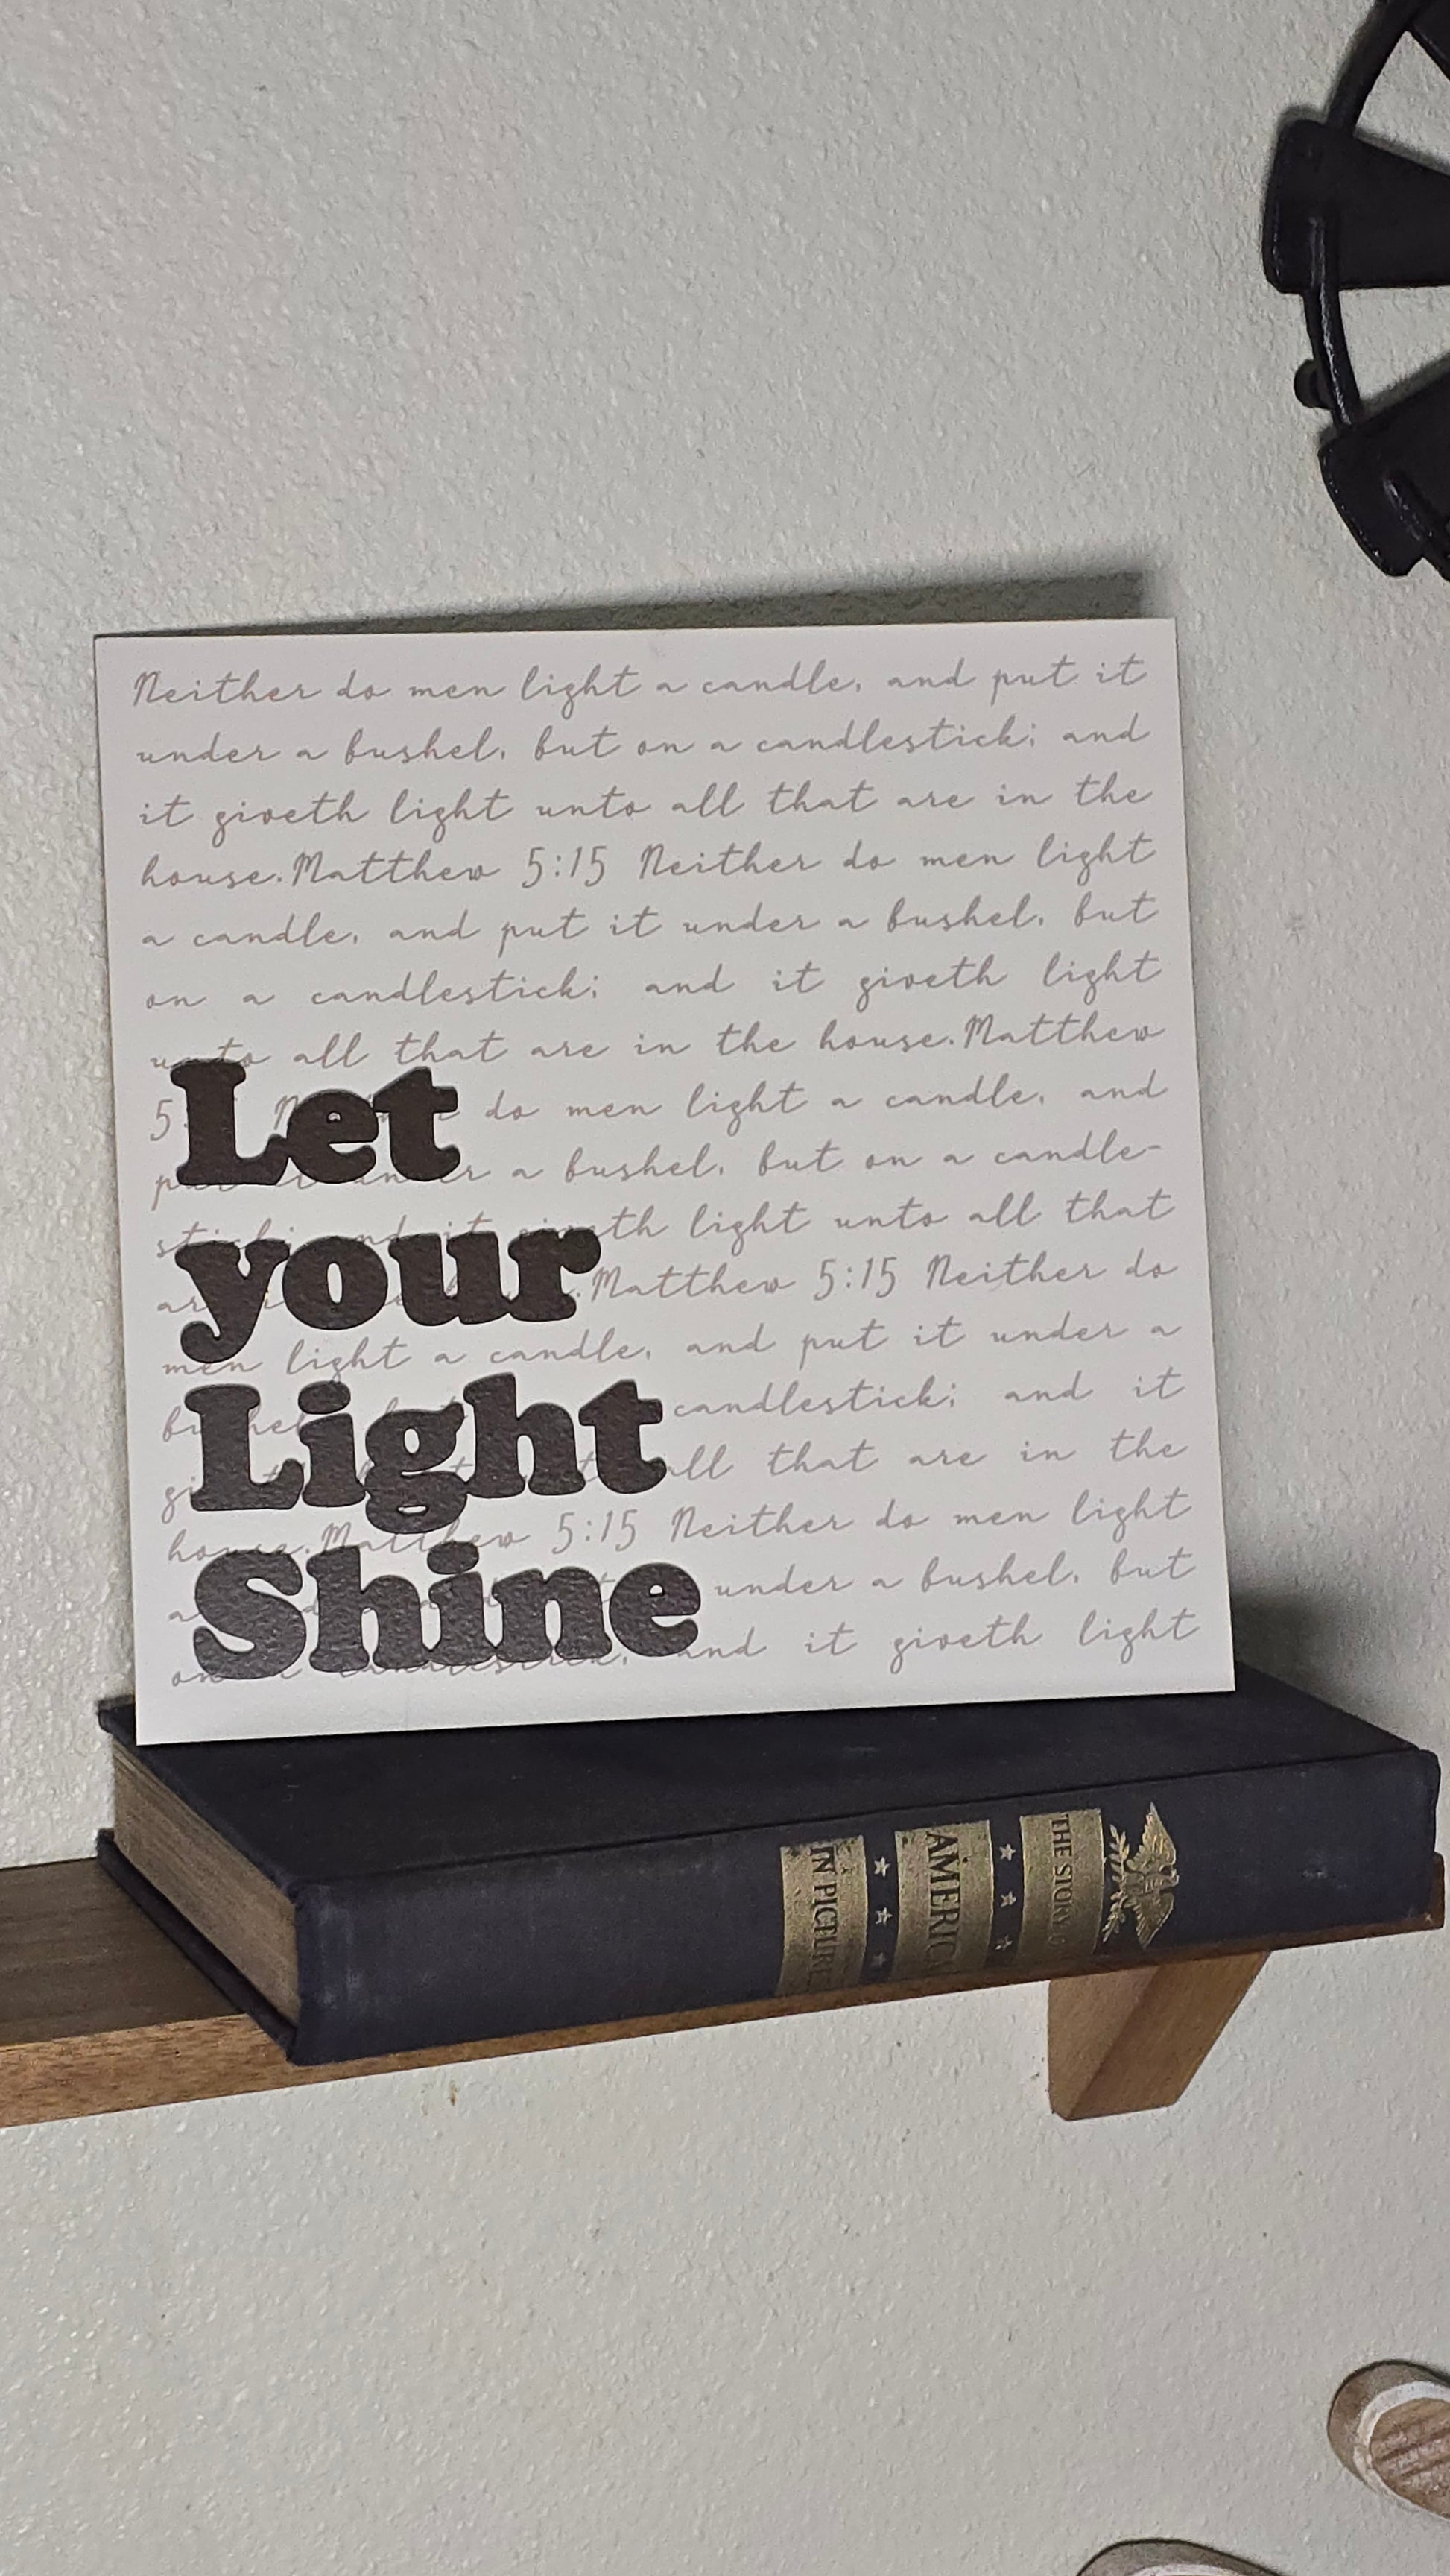 Neither do men light a candle, and put it
under a bushel, but on a candlestick; and
it giveth light unto all that are in the
house.Matthew 5:15 Neither do men light
a candle, and put it under a bushel, but
on a candlestick; and it giveth light
unto all that are in the house.Matthew
do men light a candle, and
a bushel, but on a candle-
light unto all that
Matthew 5:15 Neither do
men light a candle, and put it under a
candlestick; and it
all that are in the
house.Matthew 5:15 Neither do men light
under a bushel, but
and it giveth light
Let
your
Light
Shine
THE STORY
AMERICA
IN PICTURES